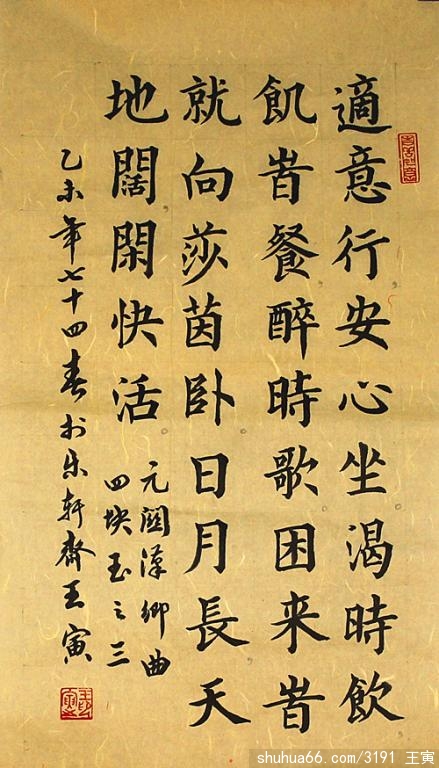 適意行安心坐渴時飲
飢旹餐醉時歌困来旹
就向莎茵卧日月長天
地闊閑快活
元關漢卿曲
四块玉之三
乙未年七十四春於乐軒齋王寅
shuhua66.com/3191 王寅